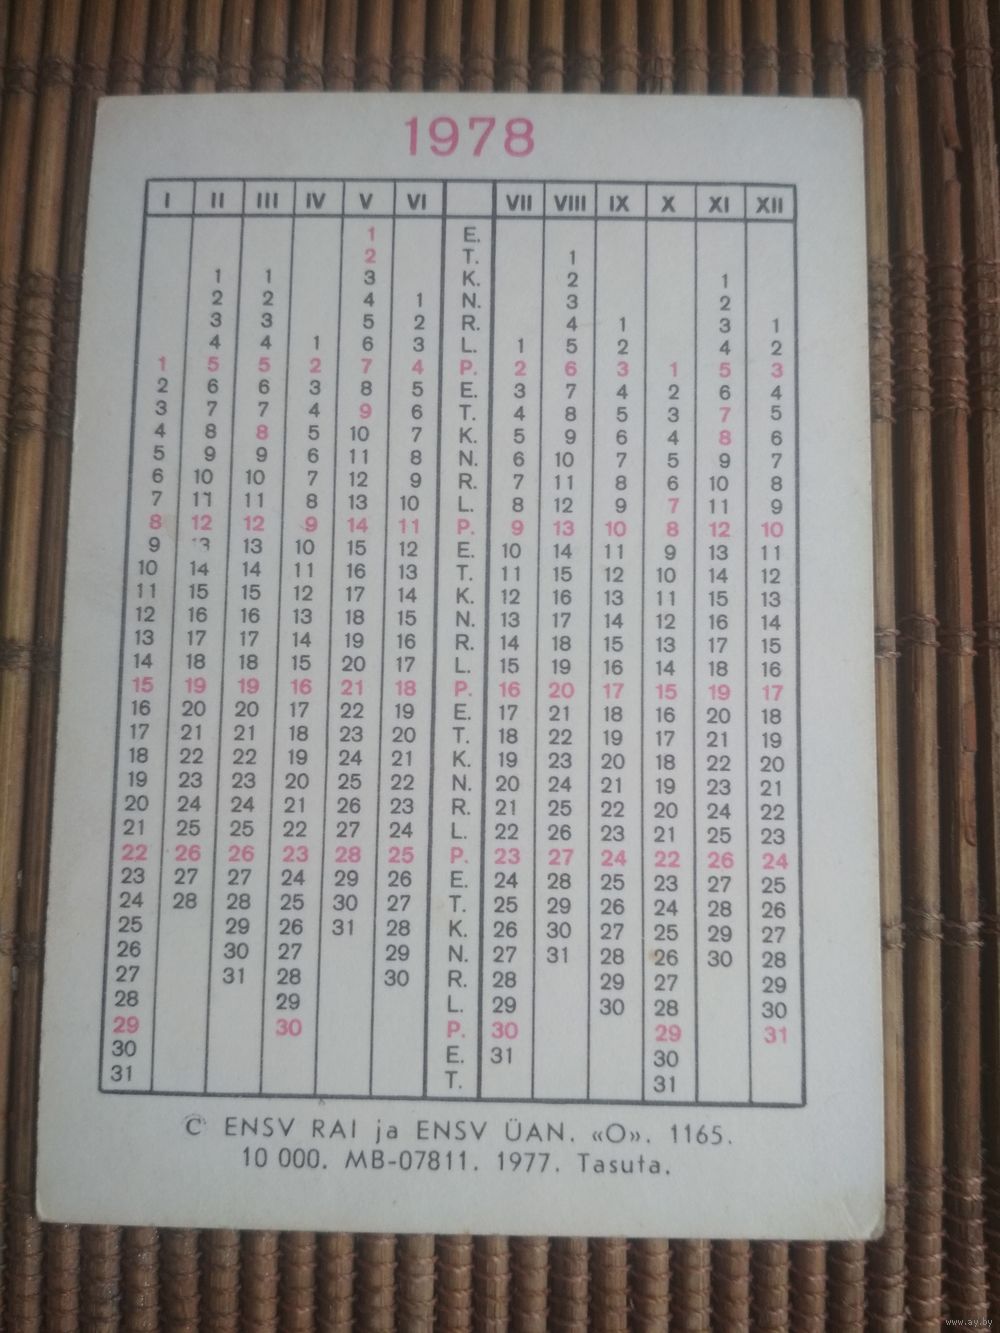 1978
I II III IV V VI VII VIII IX X XI XII
1 E.
2 T. 1
1 1 3 K. 2 1
2 2 4 1 N. 3 2
3 3 5 2 R. 4 1 3 1
4 4 1 6 3 L. 1 5 2 4 2
1 5 5 2 7 4 P. 2 6 3 1 5 3
2 6 6 3 8 5 E. 3 7 4 2 6 4
3 7 7 4 9 6 T. 4 8 5 3 7 5
4 8 8 5 10 7 K. 5 9 6 4 8 6
5 9 9 6 11 8 N. 6 10 7 5 9 7
6 10 10 7 12 9 R. 7 11 8 6 10 8
7 11 11 8 13 10 L. 8 12 9 7 11 9
8 12 12 9 14 11 P. 9 13 10 8 12 10
9 13 13 10 15 12 E. 10 14 11 9 13 11
10 14 14 11 16 13 T. 11 15 12 10 14 12
11 15 15 12 17 14 K. 12 16 13 11 15 13
12 16 16 13 18 15 N. 13 17 14 12 16 14
13 17 17 14 19 16 R. 14 18 15 13 17 15
14 18 18 15 20 17 L. 15 19 16 14 18 16
15 19 19 16 21 18 P. 16 20 17 15 19 17
16 20 20 17 22 19 E. 17 21 18 16 20 18
17 21 21 18 23 20 T. 18 22 19 17 21 19
18 22 22 19 24 21 K. 19 23 20 18 22 20
19 23 23 20 25 22 N. 20 24 21 19 23 21
20 24 24 21 26 23 R. 21 25 22 20 24 22
21 25 25 22 27 24 L. 22 26 23 21 25 23
22 26 26 23 28 25 P. 23 27 24 22 26 24
23 27 27 24 29 26 E. 24 28 25 23 27 25
24 28 28 25 30 27 T. 25 29 26 24 28 26
25 29 26 31 28 K. 26 30 27 25 29 27
26 30 27 29 N. 27 31 28 26 30 28
27 31 28 30 R. 28 29 27 29
28 29 L. 29 30 28 30
29 30 P. 30 29 31
30 E. 31 30
31 T. 31
© ENSV RAI ja ENSV ÜAN. «O». 1165.
10 000. MB-07811. 1977. Tasuta.
www.ay.by